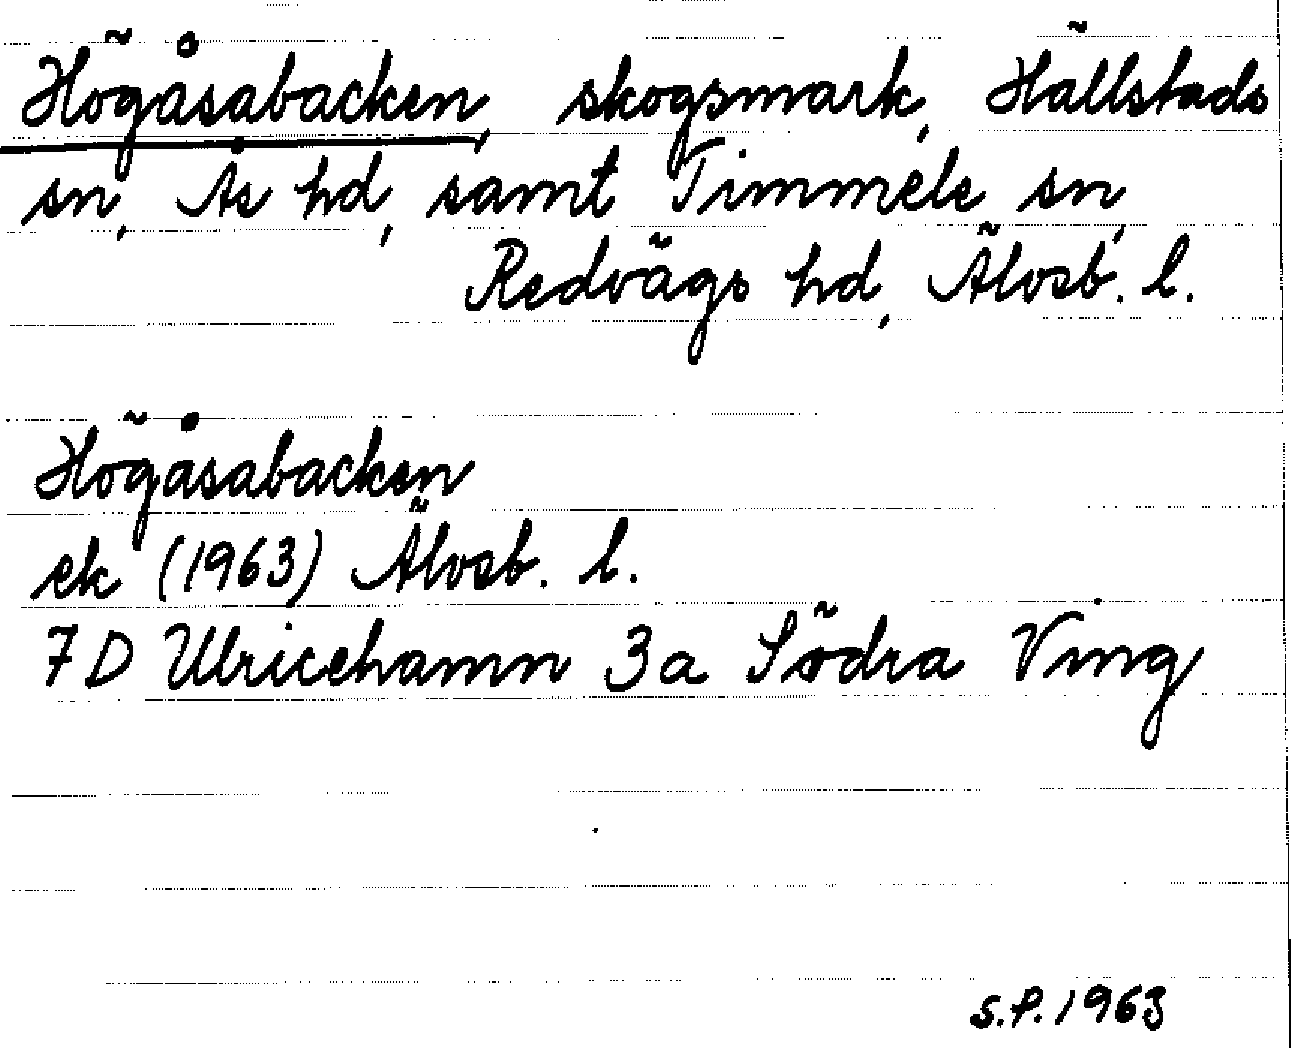 Högåsabacken, skogsmark, Hällstads
sn, Ås hd, samt Timmele sn,
Redvägs hd, Älvsb. l.
Högåsabacken
ek (1963) Älvsb. l.
7D Ulricehamn 3a Södra Ving
S.P. 1963